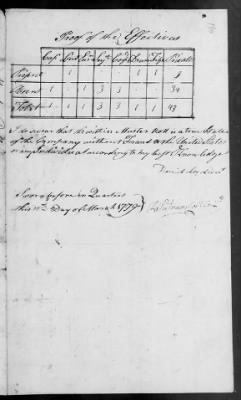 Proof of the Effectives
Capt Lieut Ens Sergts Corpls Drum Fife Privates
Present 1 1 1 1 9
1 1 3 3 34
Total 1 1 1 3 3 1 1 43
I do swear that the within Muster Roll is a true State
of the Company without Fraud to the United States
or any Individual according to my best Knowledge
Sworn before in Quarters
this Day of March 1779